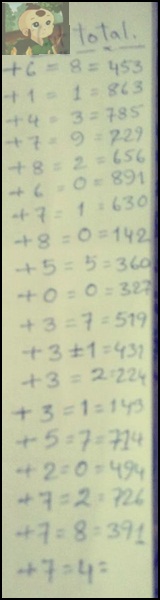 total.
+6 = 8 = 453
+1 = 1 = 863
+4 = 3 = 785
+7 = 9 = 729
+8 = 2 = 656
+6 = 0 = 891
+7 = 1 = 630
+8 = 0 = 142
+5 = 5 = 360
+0 = 0 = 327
+3 = 7 = 519
+3 ± 1 = 431
+3 = 2 = 224
+3 = 1 = 143
+5 = 7 = 714
+2 = 0 = 494
+7 = 2 = 726
+7 = 8 = 391
+7 = 4 =